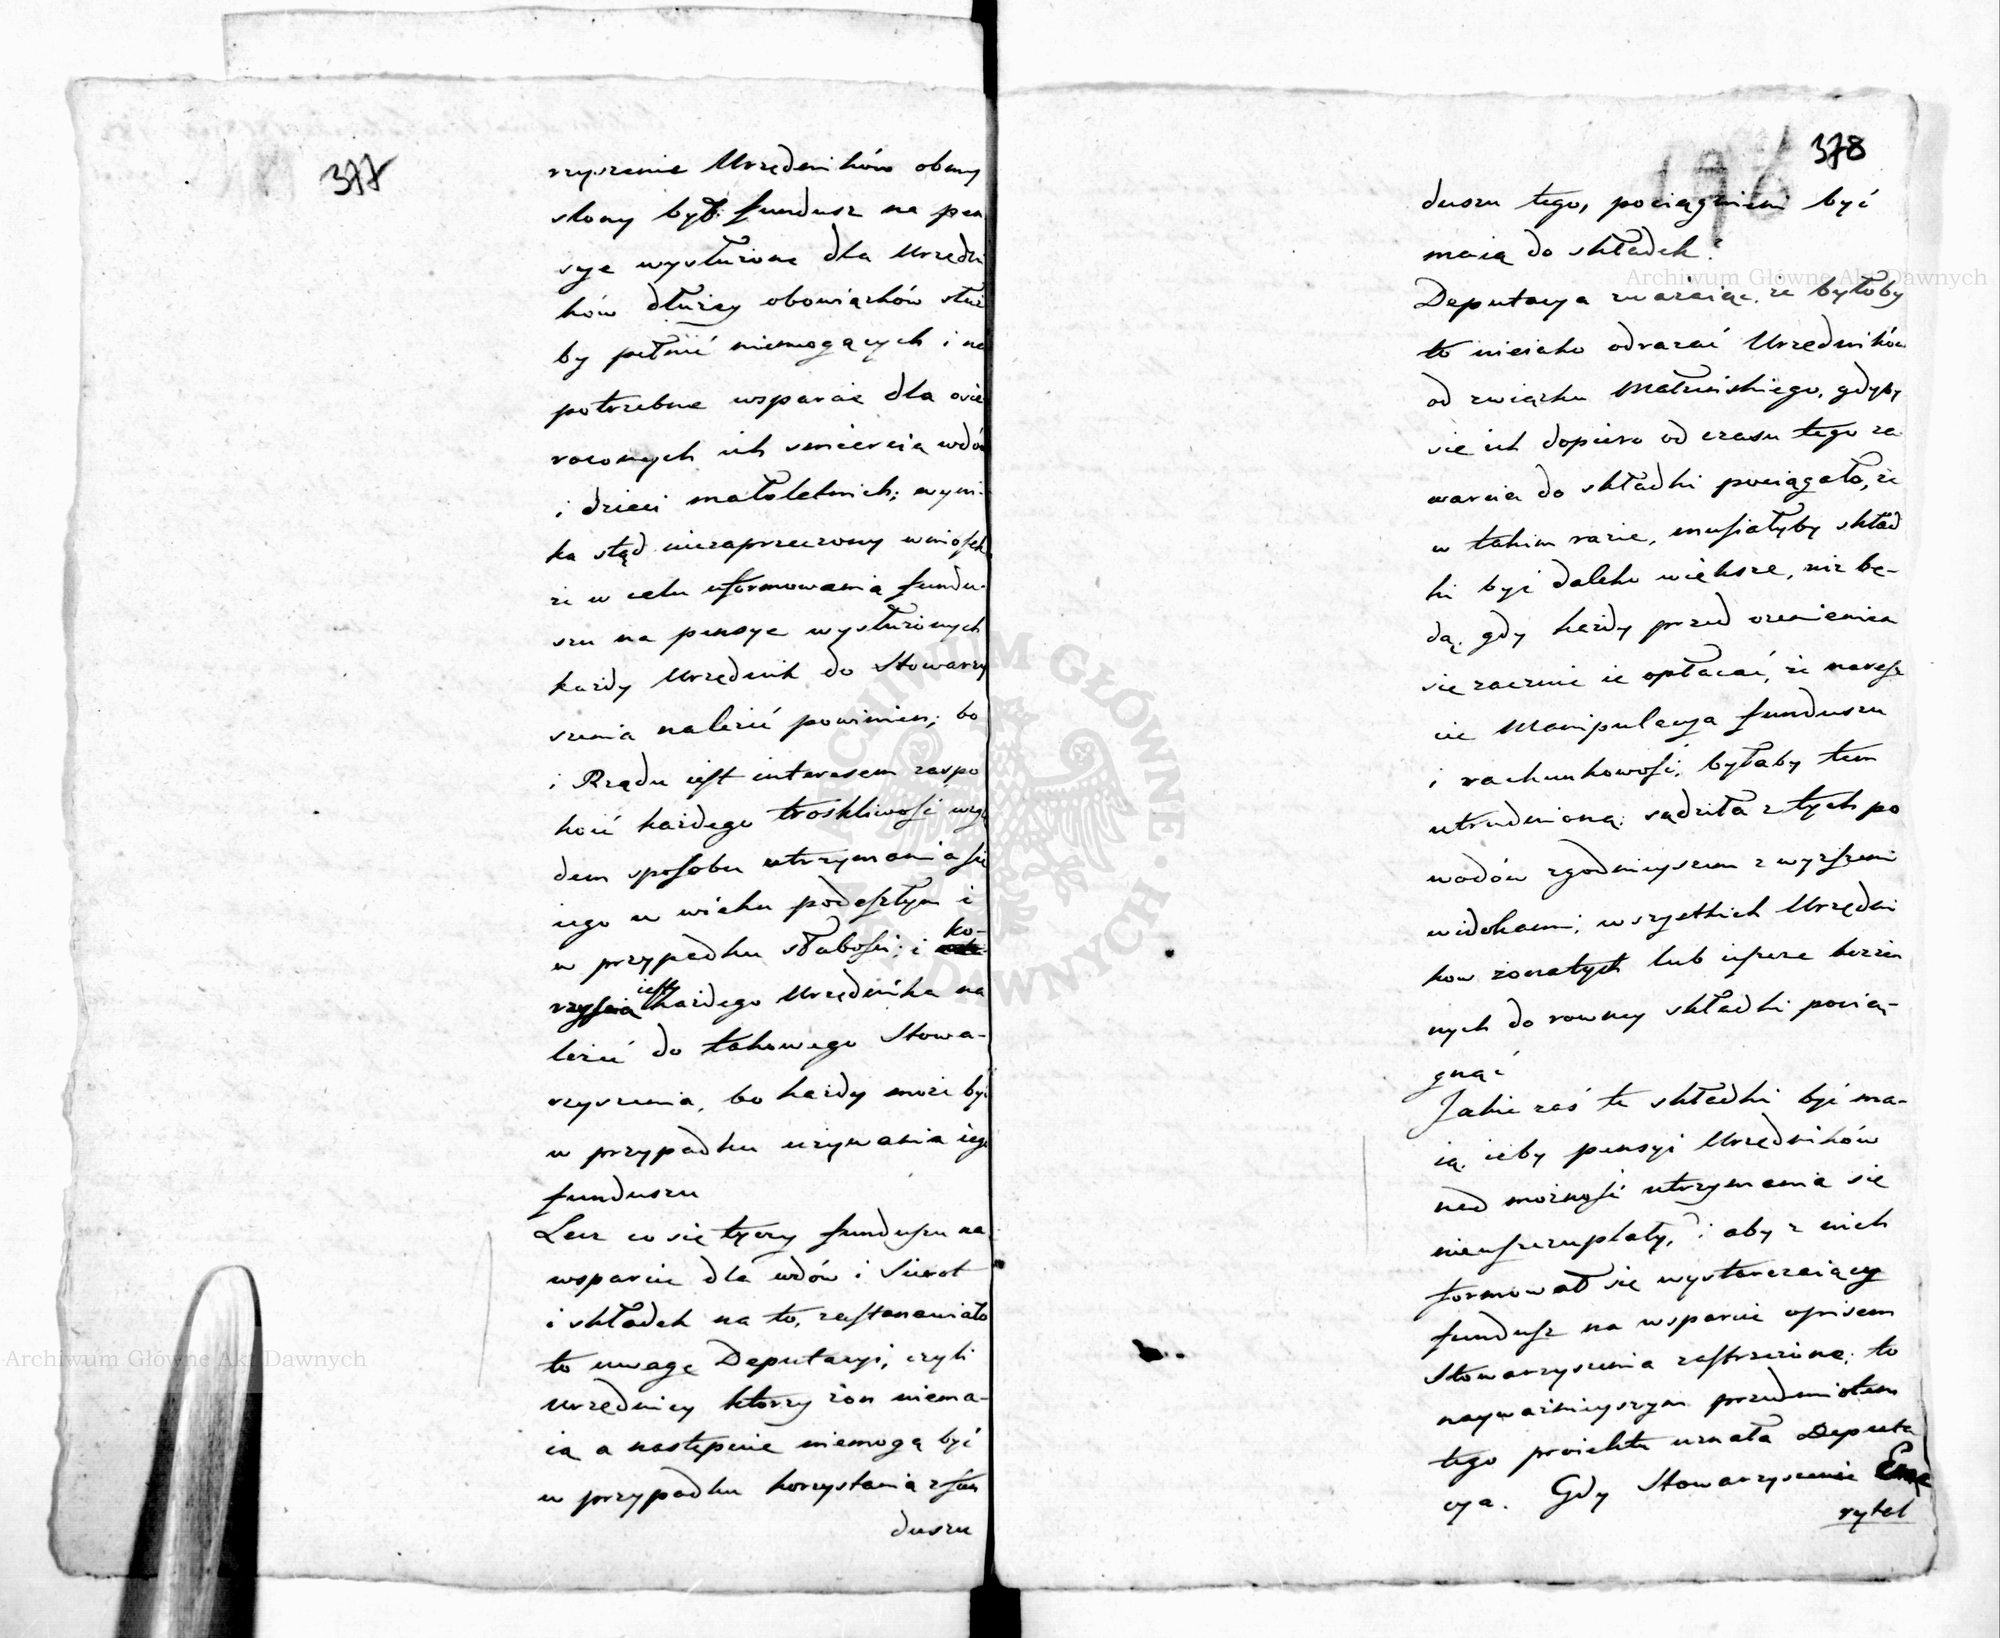 377
rzyszenie Urzędników obmy
slony był fundusz na pen
sye wysłużone dla Urzędni
ków dłużey obowiązków służ
by pełnić niemogących i na
potrzebne wsparcie dla osie
roconych ich smiercią wdów
i dzieci małoletnich; wyni-
ka stąd niezaprzeczony wniosek
że w celu uformowania fundu-
szu na pensye wysłużonych
każdy Urzędnik do Stowarzy
szenia należeć powinien; bo
i Rządu iest interesem zaspo
koić każdego troskliwość wzglę
dem sposobu utrzymania się
iego w wieku podeszłym i
w przypadku słabości; i ko-
rzyścią iest każdego Urzędnika na
leżeć do takowego Stowa-
rzyszenia, bo każdy może być
w przypadku używania iego
funduszu
Lecz co się tyczy funduszu na
wsparcie dla wdów i Sierot
i składek na to, zastanawiało
to uwagę Deputacyi, czyli
Urzędnicy ktorzy żon niema-
ią a następnie niemogą być
w przypadku korzystania z fun
duszu
378
196
duszu tego, pociągnieni być
maią do składek?
Deputacya zważaiąc, że byłoby
to nieiako odrażać Urzędników
od związku Małżeńskiego, gdyby
się ich dopiero od czasu tego za
warcia do składki pociągało, że
w takim razie, musiałyby skład
ki być daleko większe, niż bę-
dą, gdy każdy przed ożenieniem
się zacznie ie opłacać, że naresz
cie Manipulacya funduszu
i rachunkowość, byłaby tem
utrudnioną; sądziła z tych po
wodów zgodnieyszem z wyższemi
widokami; wszystkich Urzędni
kow żonatych lub ieszcze bezżen
nych do rowney składki pocią-
gnąć
Jakie zaś te składki być ma-
ią, żeby pensyi Urzędników
nad możność utrzymania się
nieuszczuplały, i aby z nich
formował się wystarczaiący
fundusz na wsparcie opisem
Stowarzyszenia zastrzeżone; to
nayważnieyszym przedmiotem
tego proiektu uznała Deputa
cya. Gdy Stowarzyszenie Eme
rytal
Archiwum Główne Akt Dawnych
Archiwum Główne Akt Dawnych
ARCHIWUM GŁÓWNE AKT DAWNYCH